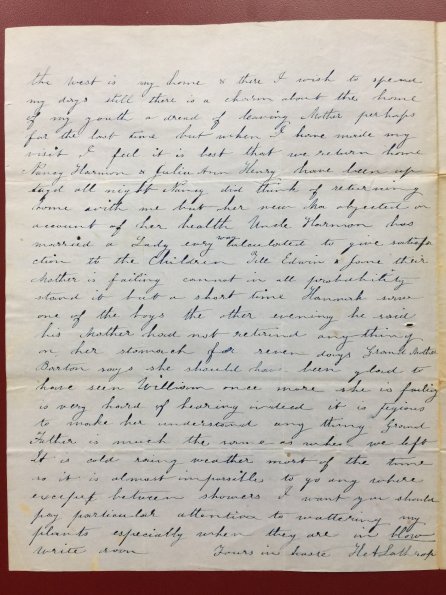 the west is my home & there I wish to spend
my days still there is a charm about the home
of my youth a dread of leaving Mother perhaps
for the last time but when I have made my
visit I feel it is best that we return home
Nancy Harmon & Julia Ann Henry have been up
stayd all night Nancy did think of returning
home with me but her new Ma objected on
account of her health Uncle Harmon has
married a Lady evry way calculated to give satisfa
ction to the Children Tell Edwin & Jane their
Mother is failing cannot in all probability
stand it but a short time Hannah saw
one of the boys the other evening he said
his Mother had not retaind any thing
on her stomach for seven days Grand Mother
Barton says she should have been glad to
have seen William once more she is failing
is very hard of hearing indeed it is
to make her understand any thing Grand
Father is much the same as when we left
It is cold rainy weather most of the time
so it is almost impossible to go any where
except between showers I want you should
pay particular attention to wattering my
plants especially when they are in blow
write soon Yours in haste H A Lathrop